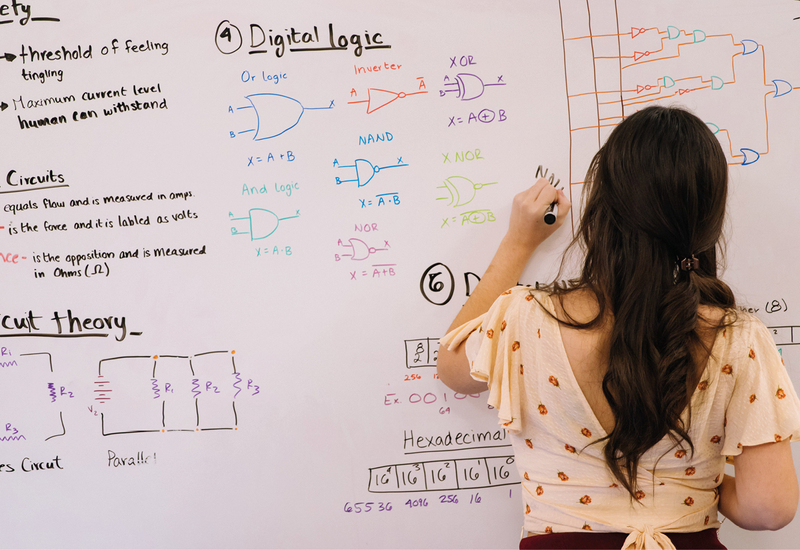 ety
threshold of feeling
tingling
Maximum current level
human can withstand
Circuits
equals flow and is measured in amps.
- is the force and it is labled as volts
nce - is the opposition and is measured
in Ohms (Ω)
cuit theory
R1
R2
R3
V2
R1
R2
R3
es Circut
Parallel
4 Digital logic
Or logic
A
B
X
X = A + B
Inverter
A
A̅
XOR
A
B
X
X = A ⊕ B
NAND
A
B
X
X = A̅·̅B̅
X NOR
X = A̅⊕̅B̅
And logic
A
B
X
X = A·B
NOR
A
B
X
X = A̅+̅B̅
6 D
(8)
256
Ex. 001
64
Hexadecimal
16⁴ 16³ 16² 16¹ 16⁰
65536 4096 256 16 1